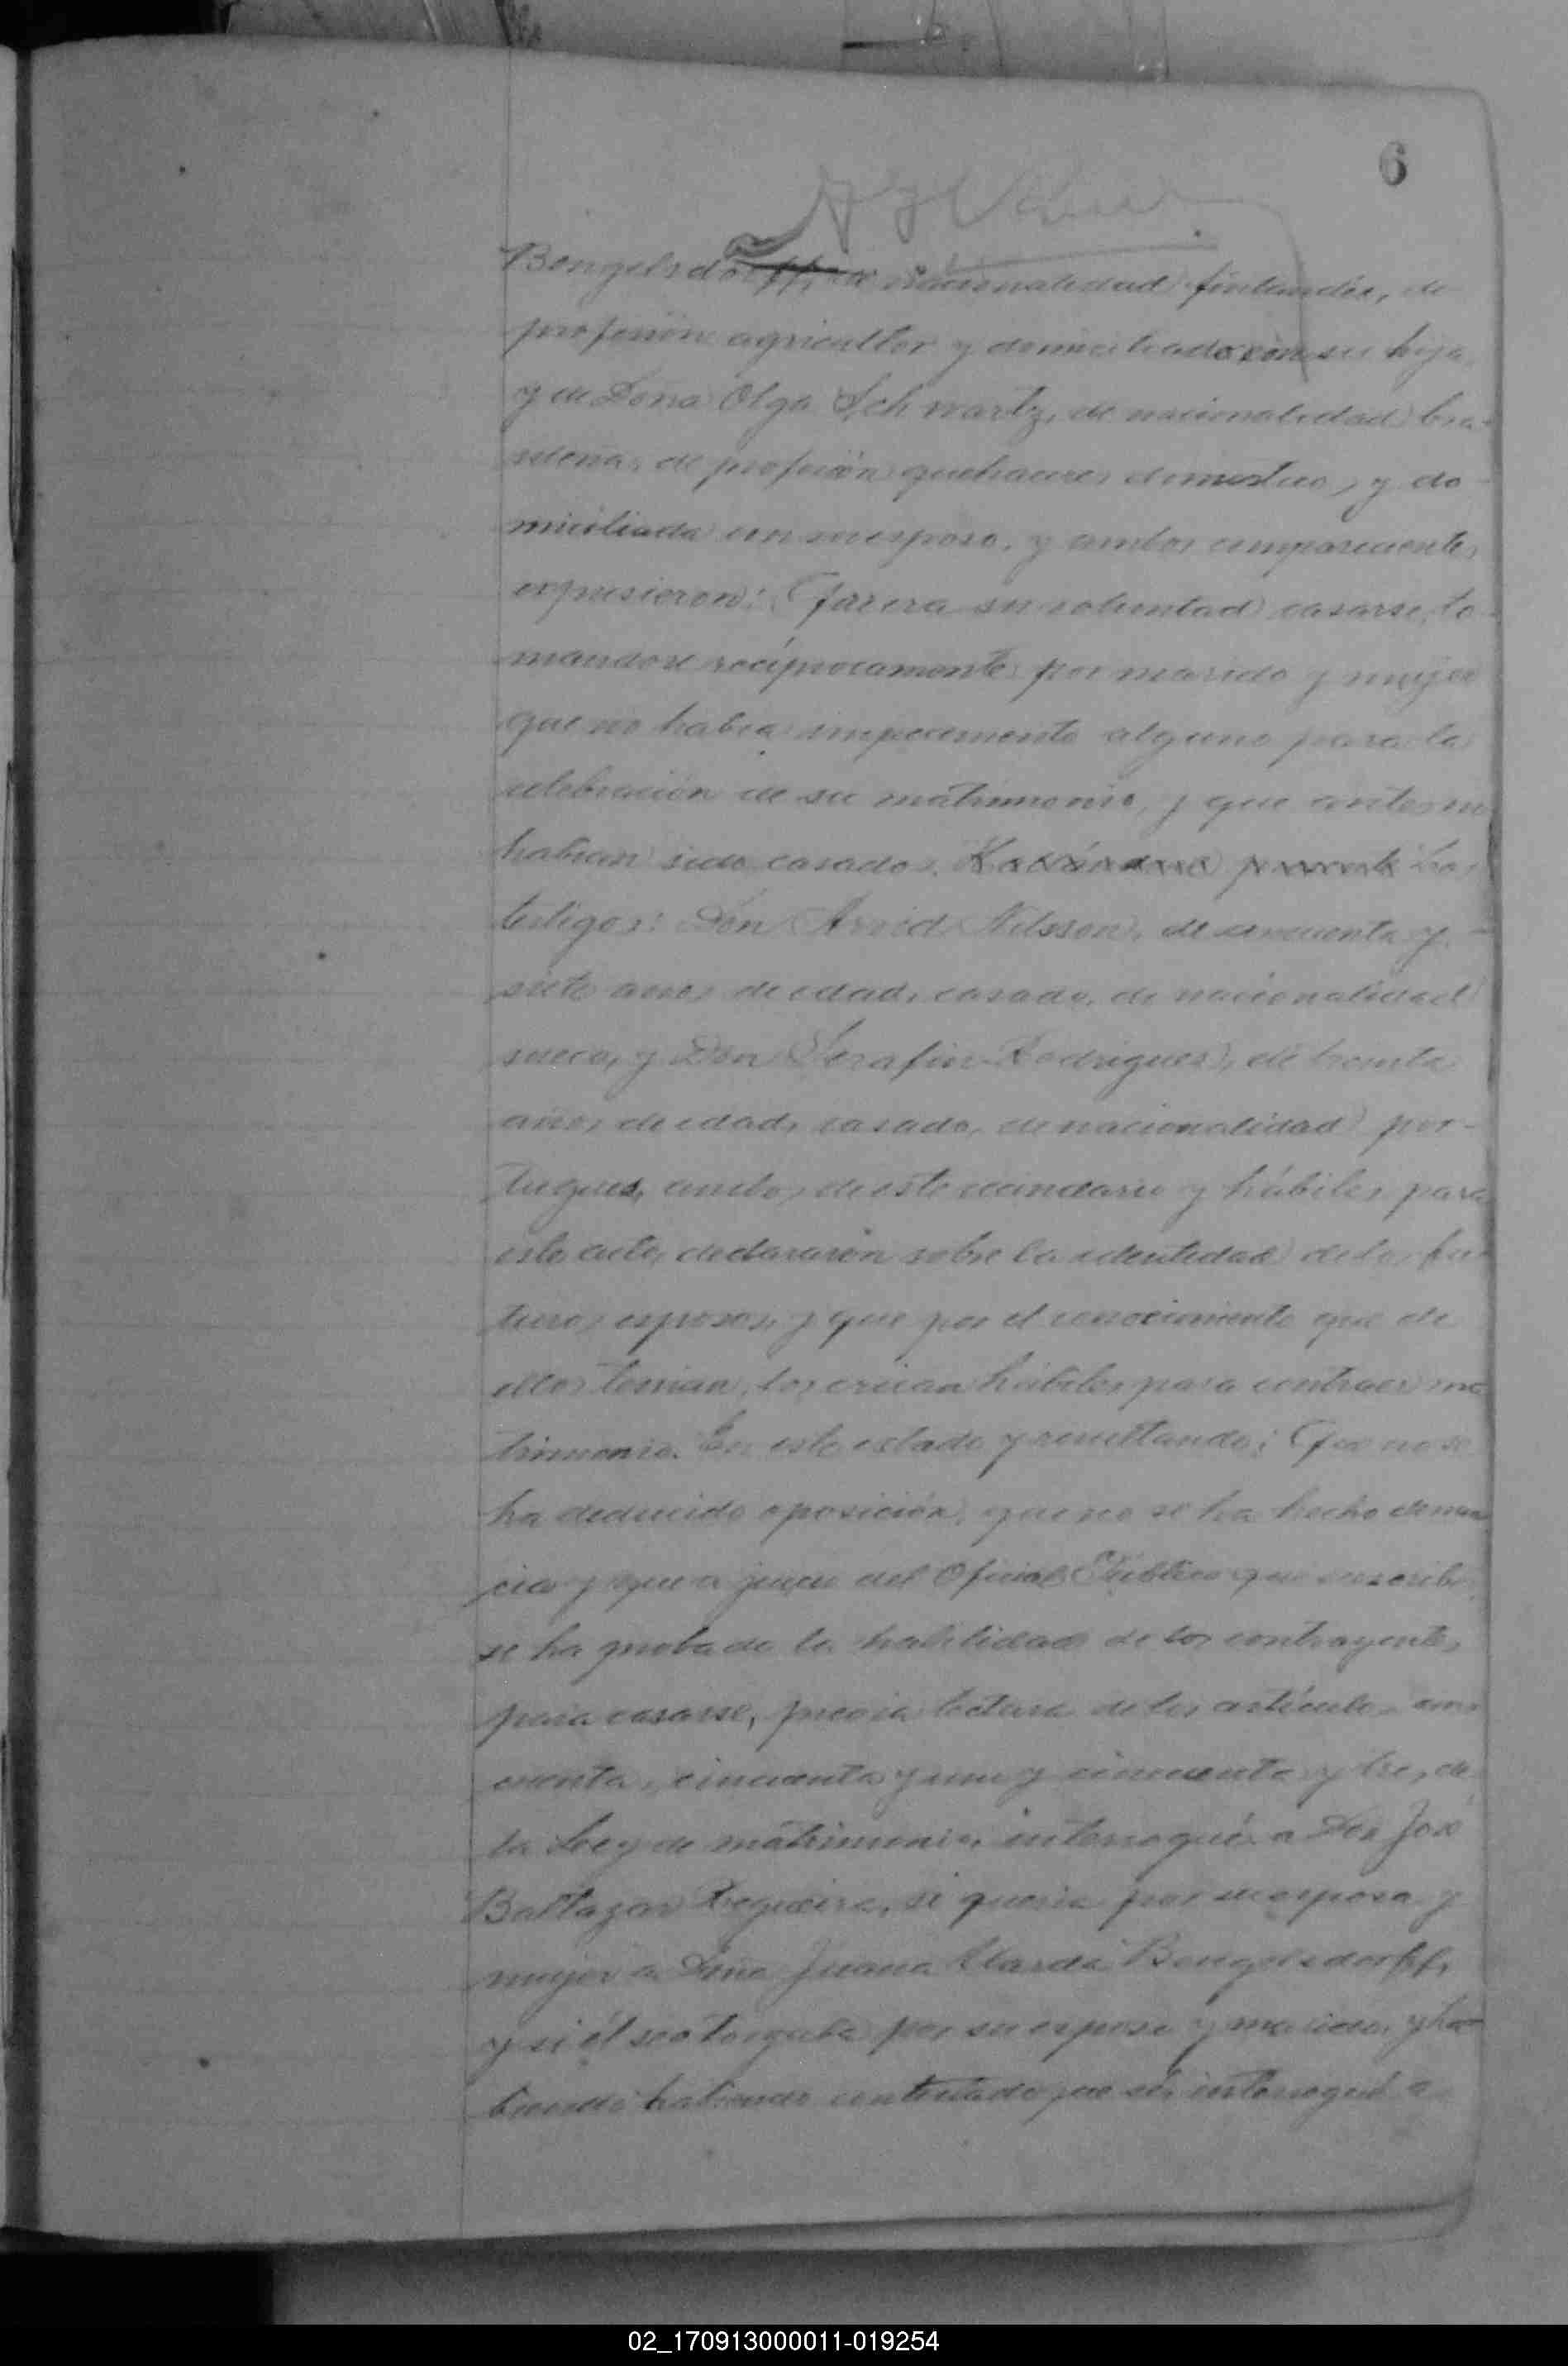 6
Bengelsdorff, de nacionalidad finlandés, de
profesión agricultor y domiciliado con su hija,
y de Doña Olga Schwartz, de nacionalidad bra-
sileña, de profesión quehaceres domésticos, y do-
miciliada con su esposo, y ambos comparecientes
expusieron: Que era su voluntad casarse, to-
mandose recíprocamente por marido y mujer
que no había impedimento alguno para la
celebración de su matrimonio, y que antes no
habian sido casados. Los
testigos: Don Arvid Nilsson, de cincuenta y
siete años de edad, casado, de nacionalidad
sueca, y Don Serafin Rodrigues, de treinta
años de edad, casado, de nacionalidad por-
tugues, ambos de este vecindario y hábiles para
este acto, declararon sobre la identidad de los fu-
turos esposos, y que por el conocimiento que de
ellos tenian, los creian hábiles para contraer ma
trimonio. En este estado y resultando: Que no se
ha deducido oposición, que no se ha hecho denun
cia y que a juicio del Oficial Público que suscribe
se ha probado la habilidad de los contrayentes
para casarse, previa lectura de los artículos cin-
cuenta, cincuenta y uno y cincuenta y tres, de
la Ley de matrimonio, interrogué a Don José
Baltazar Regueira, si queria por su esposa y
mujer a Doña Juana Bengelsdorff,
y si él se otorgaba por su esposo y marido, y ha
biendo habiendo contestado que sí, interrogué a
02_170913000011-019254